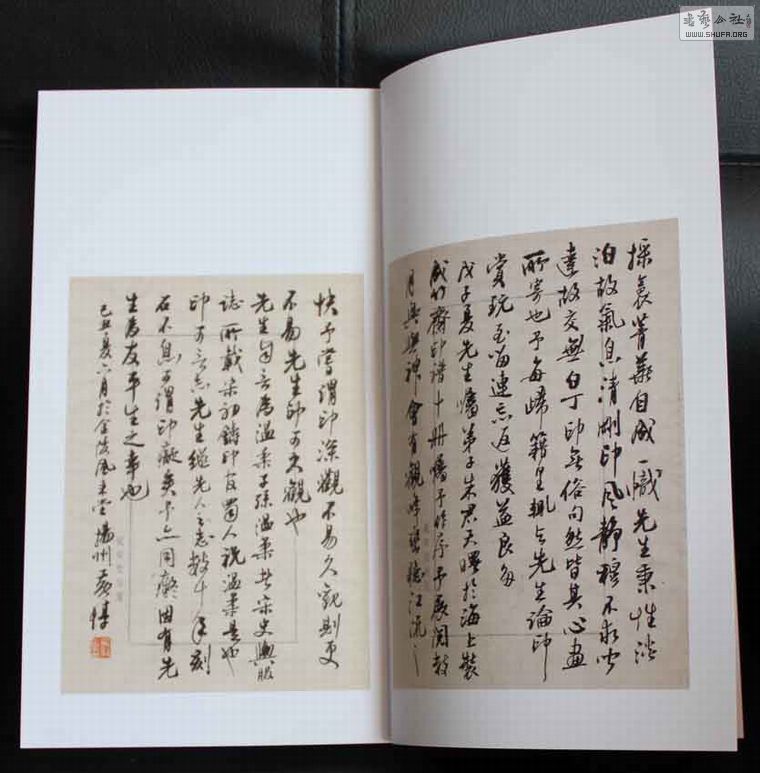 採襄菁華自成一幟先生秉性淡
泊故氣息清剛印風靜穆不求聞
達故交無白丁印無俗句然皆其心畫
所寄也予每歸籍里輒與先生論印
賞玩至留連忘返獲益良多
戊子夏先生攜弟子朱君天曙於海上裝
成竹齋印譜十冊攜予作序予展閱數
月與與神會有觀峰巒穩江流之
快予嘗謂印深觀不易久觀則更
不易先生印可久觀也
先生自言為溫柔子孫溫柔者宋史輿服
誌所載宋初鑄印官蜀人祝溫柔是也
印可言志先生繼先人之志數十年刻
石不息可謂印癡矣予亦同癡因有先
生為友平生之幸也
己丑夏六月於金陵風來堂揚州黃惇
書藝公社
WWW.SHUFA.ORG